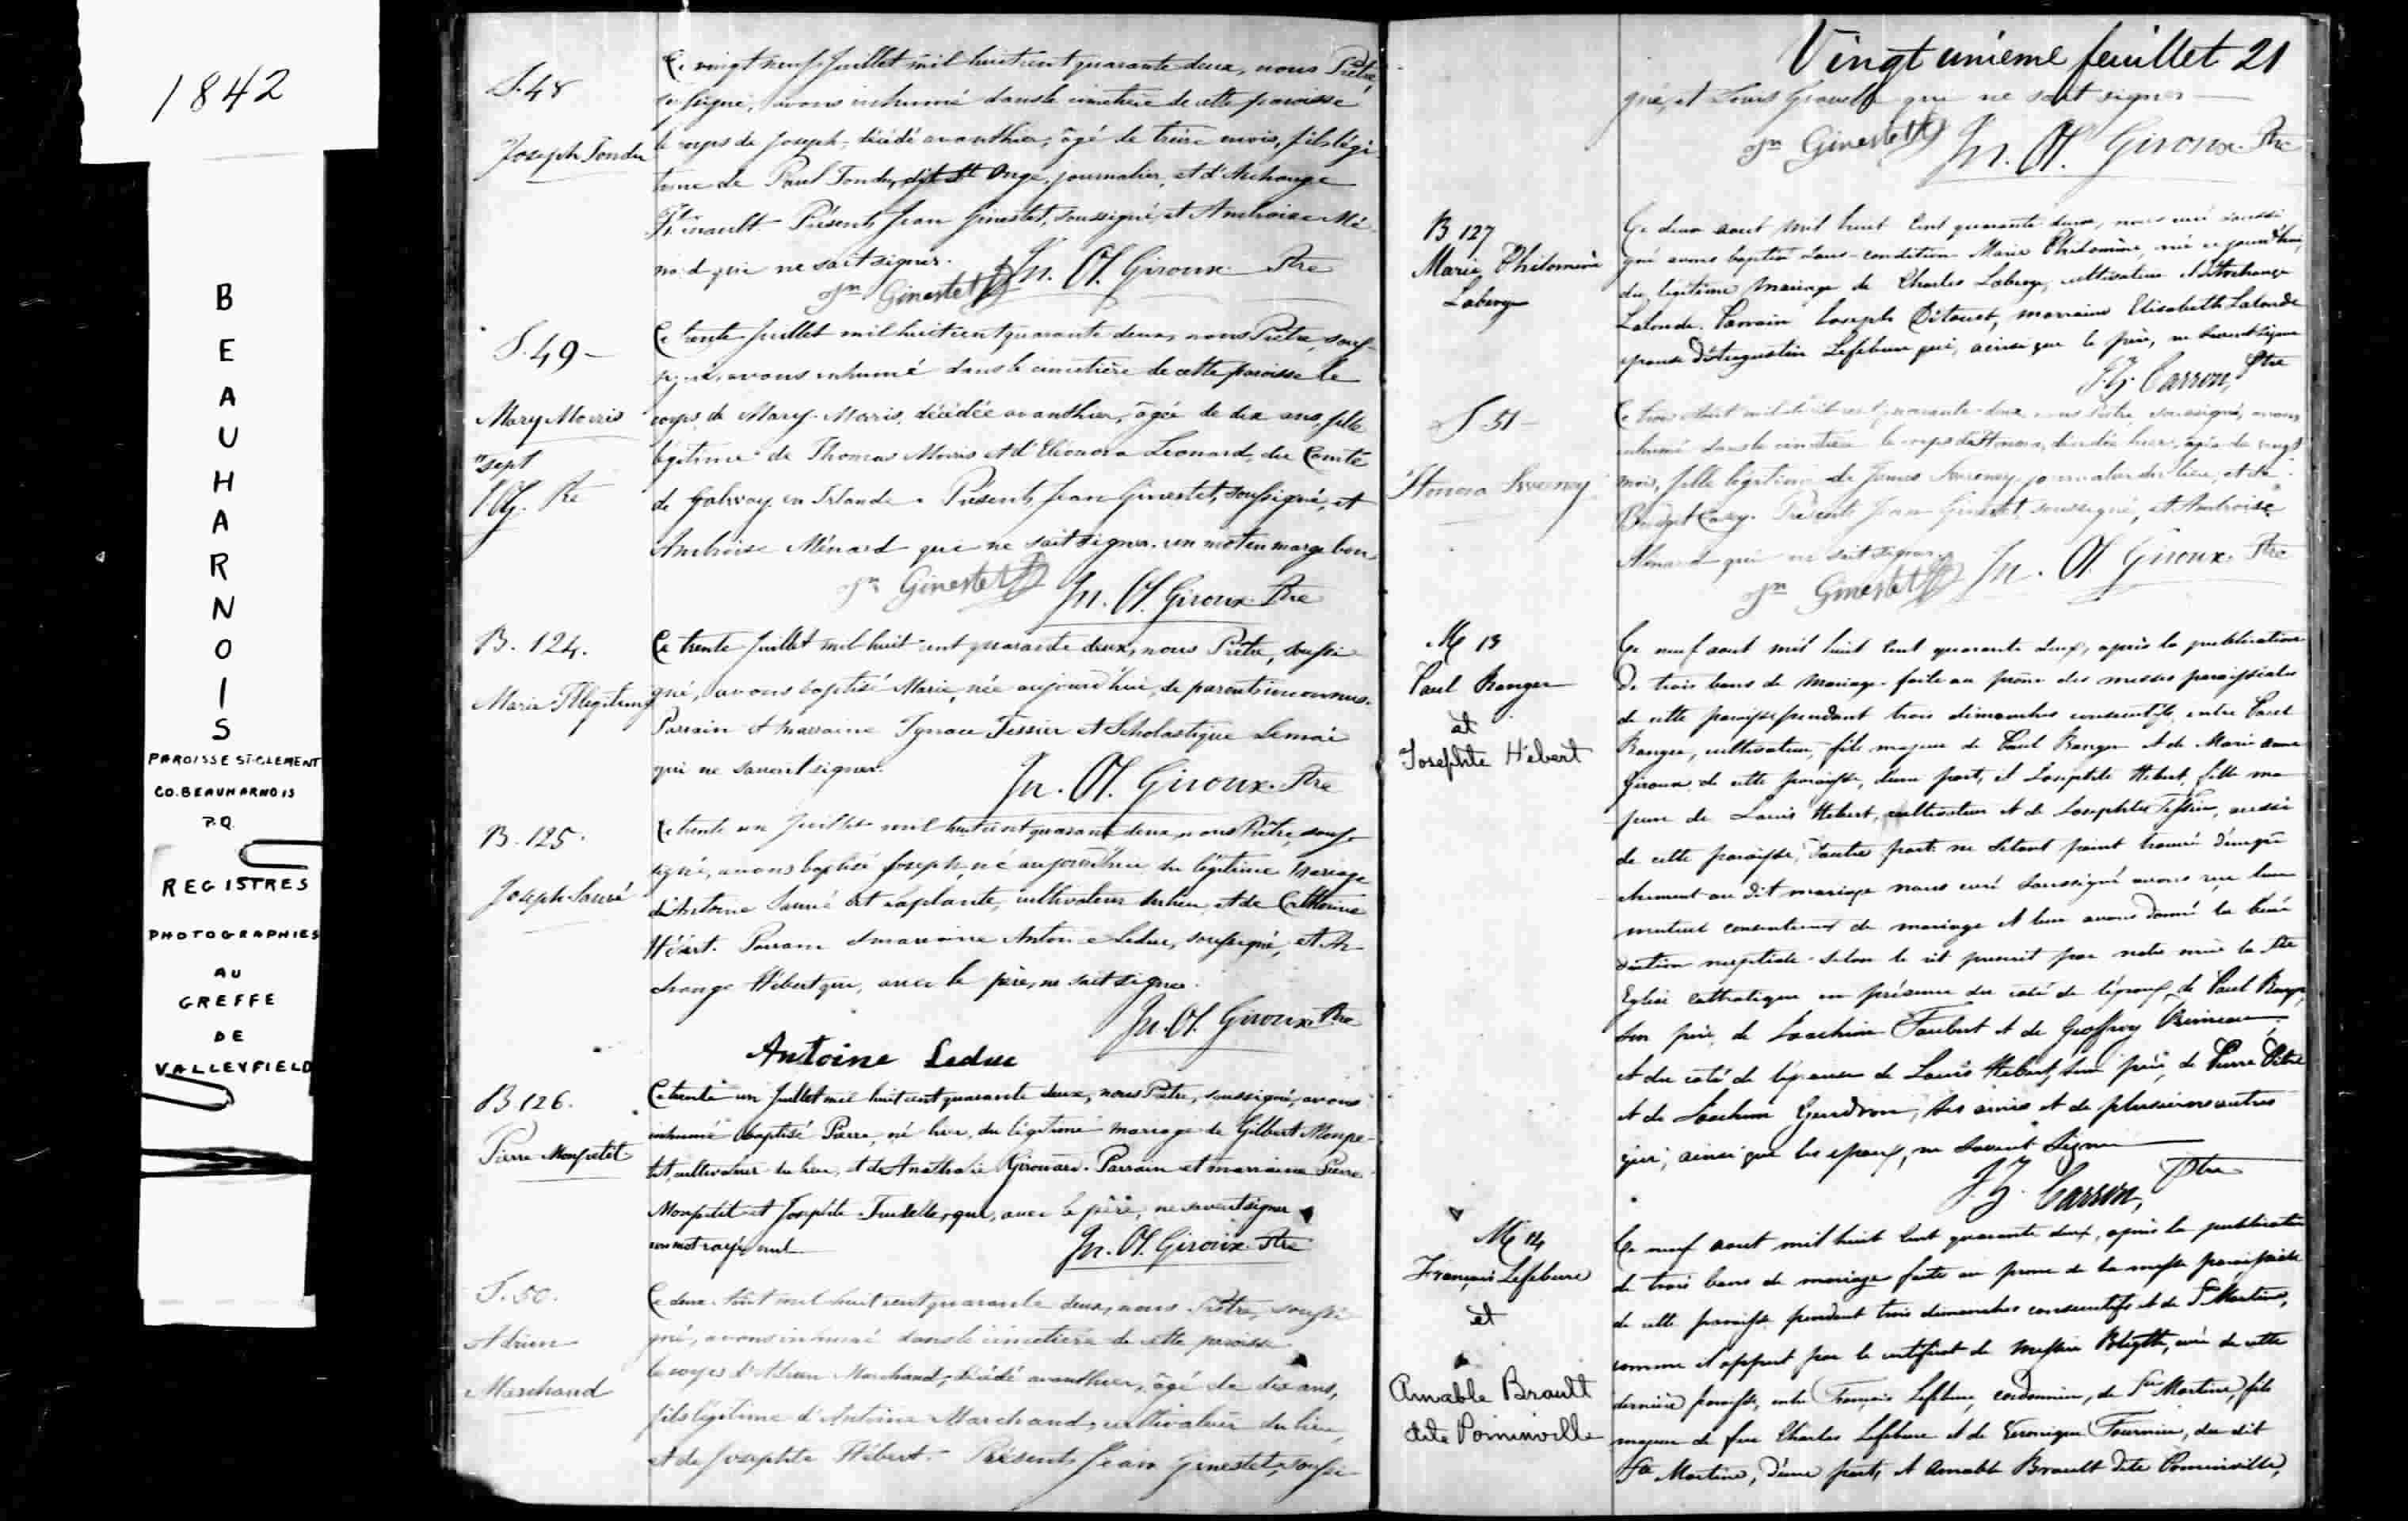 1842
BEAUHARNOIS
PAROISSE ST-CLEMENT
CO. BEAUHARNOIS
P.Q.
REGISTRES
PHOTOGRAPHIES
AU
GREFFE
DE
VALLEYFIELD
S. 48
Joseph Tondu
Ce vingt neuf Juillet mil huit cent quarante deux, nous Prêtre
soussigné, avons inhumé dans le cimetière de cette paroisse
le corps de Joseph, décédé avanthier, âgé de treize mois, fils légi
time de Paul Tondu, dit St Onge, journalier, et d'Archange
Présents Jean Ginestet, soussigné, et Ambroise Mé
nard qui ne sait signer.
Jn Ginestet Jn. Ol. Giroux Ptre
S. 49 -
Mary Morris
"sept
Ptre
Ce trente Juillet mil huit cent quarante deux, nous Prêtre, sous-
signé, avons inhumé dans le cimetière de cette paroisse le
corps de Mary Morris, décédée avanthier, âgée de dix ans, fille
légitime" de Thomas Morris et d'Eleonora Leonard, du Comté
de Galway en Irlande. Présents Jean Ginestet, soussigné, et
Ambroise Ménard qui ne sait signer. un mot en marge bon.
Jn Ginestet Jn. Ol. Giroux Ptre
B. 124.
Marie Illegitime
Ce trente Juillet mil huit cent quarante deux, nous Prêtre, soussi
gné, avons baptisé Marie, née aujourd'hui, de parents inconnus.
Parrain et marraine Ignace Tessier et Scholastique Lemai
qui ne savent signer.
Jn. Ol. Giroux. Ptre
B. 125.
Joseph Sauvé
Ce trente un Juillet mil huit cent quarante deux, nous Prêtre, sous-
signé, avons baptisé Joseph, né aujourd'hui du légitime mariage
d'Antoine Sauvé dit Laplante, cultivateur du lieu, et de Catherine
Hébert. Parrain et marraine Antoine Leduc, soussigné, et Ar-
change Hébert qui, avec le père, ne sait signer.
Jn. Ol. Giroux Ptre
Antoine Leduc
B. 126.
Pierre Monpetit
Ce trente un Juillet mil huit cent quarante deux, nous Prêtre, soussigné, avons
inhumé baptisé Pierre, né hier, du légitime mariage de Gilbert Monpe-
tit, cultivateur du lieu, et de Anathalie Girouard. Parrain et marraine Pierre
Monpetit et Josephte qui, avec le père, ne savent signer
un mot rayé nul
Jn. Ol. Giroux Ptre
S. 50.
Adrien
Marchand
Ce deux Août mil huit cent quarante deux, nous Prêtre, soussi
gné, avons inhumé dans le cimetière de cette paroisse
le corps d'Adrien Marchand, décédé avanthier, âgé de dix ans,
fils légitime d'Antoine Marchand, cultivateur du lieu,
et de Josephte Hébert. Présents Jean Ginestet, soussi
Vingt unieme feuillet 21
gné, et Louis qui ne sait signer
Jn Ginestet Jn. Ol. Giroux Ptre
B 127
Marie Philomène
Laberge
Ce deux aout mil huit cent quarante deux, nous curé soussi
gné avons baptisé sous-condition Marie Philomène, née ce jourd'hui,
du légitime mariage de Charles Laberge, cultivateur et d'Archange
Lalonde. Parrain Joseph marraine Elisabeth Lalonde
epouse d'Augustin Lefebvre qui, ainsi que le père, ne savent signer
Ptre
S 51 -
Honora Sweeney
Ce trois Août mil huit cent quarante deux nous Prêtre, soussigné, avons
inhumé dans le cimetière le corps d'Honora, décédée hier, âgée de vingt
mois, fille légitime de James Sweeney, journalier du lieu, et de
Bridget Casey. Présents Jean Ginestet, soussigné, et Ambroise
Ménard qui ne sait signer.
Jn Ginestet Jn. Ol. Giroux. Ptre
M 13
Paul Ranger
et
Josephte Hébert
Ce neuf aout mil huit cent quarante deux, après la publication
de trois bans de mariage faite au prône des messes paroissiales
de cette paroisse pendant trois dimanches consecutifs, entre Paul
Ranger, cultivateur, fils majeur de Paul Ranger et de Marie Anne
Giroux de cette paroisse, d'une part, et Josephte Hebert, fille ma
jeure de Louis Hebert, cultivateur et de Josephte aussi
de cette paroisse, d'autre part ne s'etant point trouvé d'empe
chement au dit mariage nous curé soussigné avons reçu leur
mutuel consentement de mariage et leur avons donné la béné
diction nuptiale selon le rit prescrit par notre mère la Ste
Eglise catholique en présence du coté de l'époux, de Paul Ranger,
son père, de Joachim Faubert et de Geoffroy
et du coté de l'épouse de Louis Hebert, son père, de Pierre
et de Joachim Gendron, ses amis et de plusieurs autres
qui, ainsi que les epoux, ne savent signer
Ptre
M 14
François Lefebvre
et
Amable Brault
dite Pominville
Ce neuf aout mil huit cent quarante deux, après la publication
de trois bans de mariage faite au prone de la messe paroissiale
de cette paroisse pendant trois dimanches consecutifs et de Ste Martine,
comme il appert par le certificat de messire curé de cette
dernière paroisse, entre François Lefebvre, cordonnier, de Ste Martine, fils
majeur de feu Charles Lefebvre et de Veronique Fournier, du dit
Ste Martine, d'une part, et Amable Brault dite Pominville,